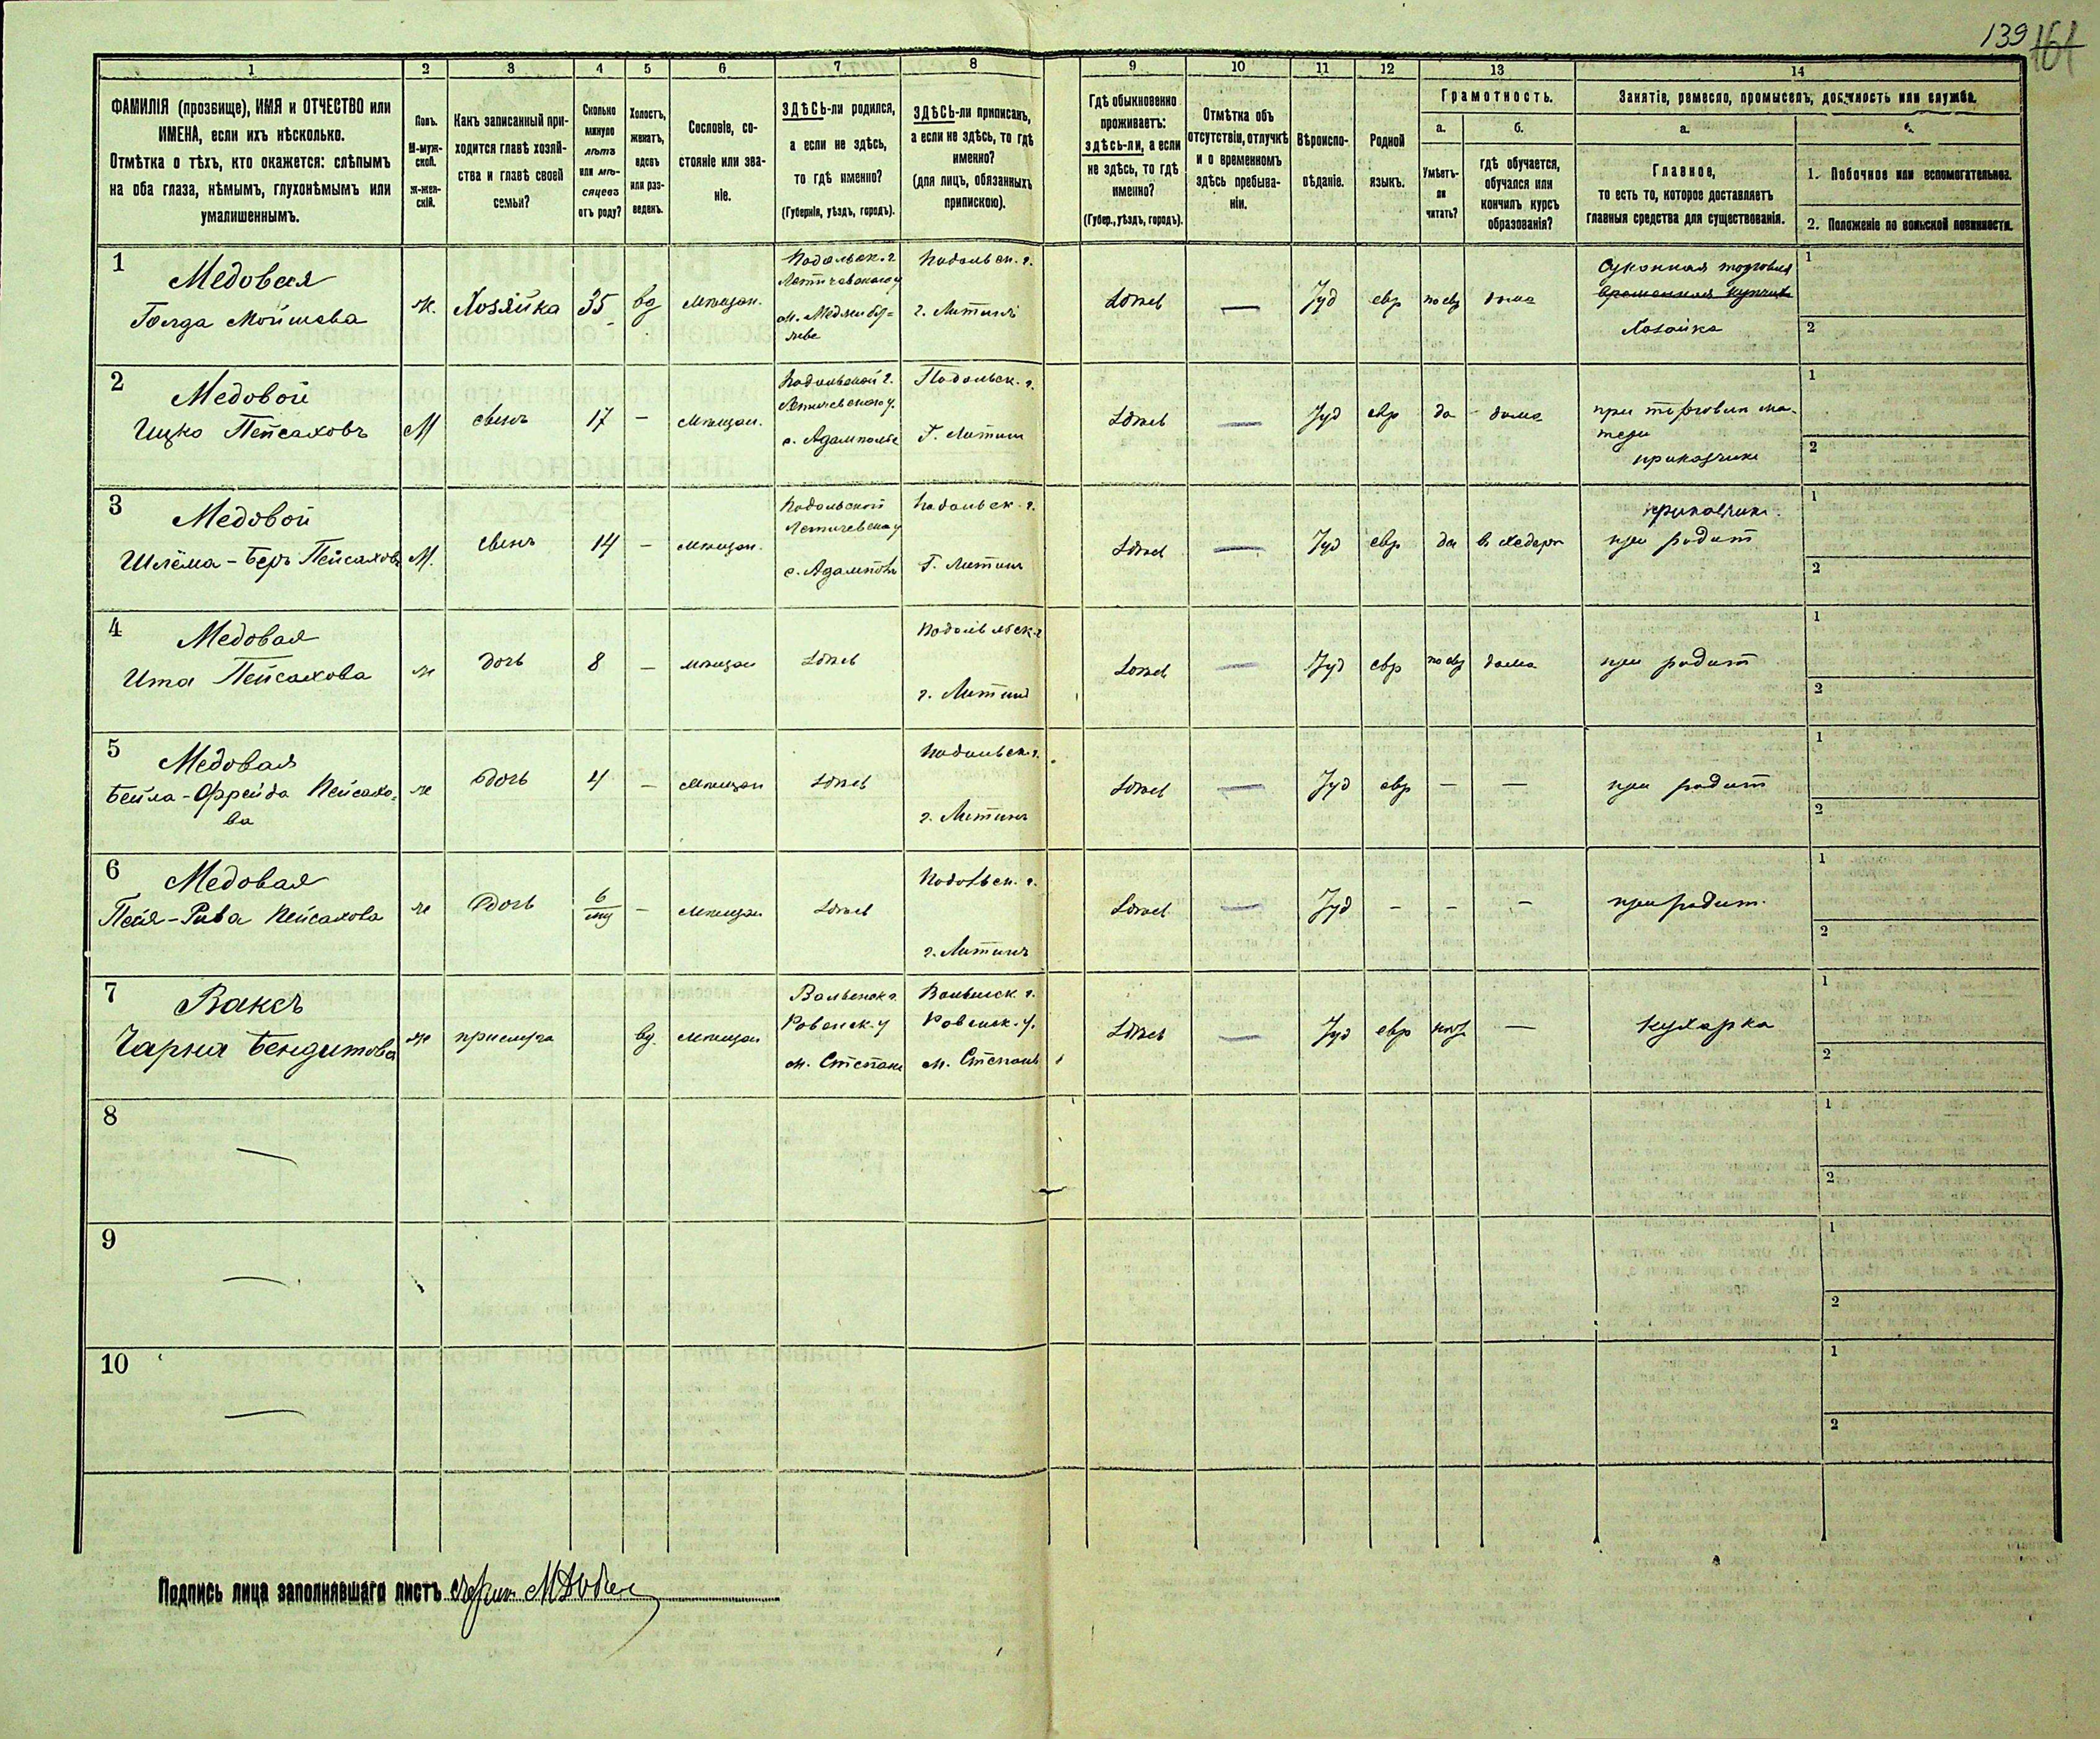 139 161
1 2 3 4 5 6 7 8 9 10 11 12 13 14
ФАМИЛІЯ (прозвище), ИМЯ и ОТЧЕСТВО или
ИМЕНА, если ихъ нѣсколько.
Отмѣтка о тѣхъ, кто окажется: слѣпымъ
на оба глаза, нѣмымъ, глухонѣмымъ или
умалишеннымъ.
Полъ.
М-муж-
ской.
Ж-жен-
скій.
Какъ записанный при-
ходится главѣ хозяй-
ства и главѣ своей
семьи?
Сколько
минуло
лѣтъ
или мѣ-
сяцевъ
отъ роду?
Холостъ,
женатъ,
вдовъ
или раз-
веденъ.
Сословіе, со-
стояніе или зва-
ніе.
ЗДѢСЬ-ли родился,
а если не здѣсь,
то гдѣ именно?
(Губернія, уѣздъ, городъ).
ЗДѢСЬ-ли приписанъ,
а если не здѣсь, то гдѣ
именно?
(для лицъ, обязанныхъ
припискою).
Гдѣ обыкновенно
проживаетъ:
здѣсь-ли, а если
не здѣсь, то гдѣ
именно?
(Губер., уѣздъ, городъ).
Отмѣтка объ
отсутствіи, отлучкѣ
и о временномъ
здѣсь пребыва-
ніи.
Вѣроиспо-
вѣданіе.
Родной
языкъ.
Грамотность.
а.
Умѣетъ-
ли
читать?
б.
гдѣ обучается,
обучался или
кончилъ курсъ
образованія?
Занятіе, ремесло, промыселъ, должность или служба.
а.
Главное,
то есть то, которое доставляетъ
главныя средства для существованія.
б.
1. Побочное или вспомогательное.
2. Положеніе по воинской повинности.
1
Медовая
Голда Мойшева
ж.
Хозяйка
35
вд
мѣщан.
Подольск. г
Летичевскаго у
м. Меджибу=
жье
Подольск. г.
г. Литинѣ
Здѣсь
—
Іуд
евр
по евр
дома
Суконная торговля
Хозяйка
1
2
2
Медовой
Ицко Пейсаховъ
М
сынъ
17
—
мѣщан.
Подольской г.
Летичевскаго у.
с. Адамполье
Подольск. г.
Г. Литинъ
Здѣсь
—
Іуд
евр
да
дома
при торговли ма-
тери
приказчикъ
1
2
3
Медовой
Шлёма-Беръ Пейсаховъ
М.
сынъ
14
—
мѣщан.
Подольской
Летичевска у
с. Адамполь
Подольск. г.
Г. Литинъ
Здѣсь
—
Іуд
евр
да
в хедерѣ
приказчик.
при родит
1
2
4
Медовая
Ита Пейсахова
ж
дочь
8
—
мѣщан
Здѣсь
Подольск. г
г. Литинъ
Здѣсь
—
Іуд
евр
по евр
дома
при родит
1
2
5
Медовая
Бейла-Фрейда Пейсахо-
ва
ж
дочь
4
—
мѣщан
Здѣсь
Подольск. г.
г. Литинъ
Здѣсь
—
Іуд
евр
—
—
при родит
1
2
6
Медовая
Пейя-Рива Пейсахова
ж
дочь
6
мц
—
мѣщан
Здѣсь
Подольск. г.
г. Литинъ
Здѣсь
—
Іуд
—
—
—
при родит.
1
2
7
Ваксъ
Чарна Бендитова
ж
прислуга
вд.
мѣщан
Волынск г.
Ровенск. у
м. Степань
Волынск. г.
Ровенск. у.
м. Степань
Здѣсь
—
Іуд
евр
—
кухарка
1
2
8
—
1
2
9
—
1
2
10
—
1
2
Подпись лица заполнявшаго листъ